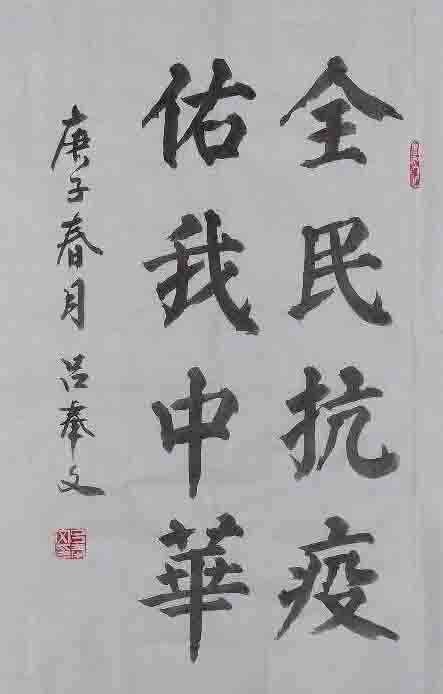 全民抗疫
佑我中華
庚子春月 吕奉文